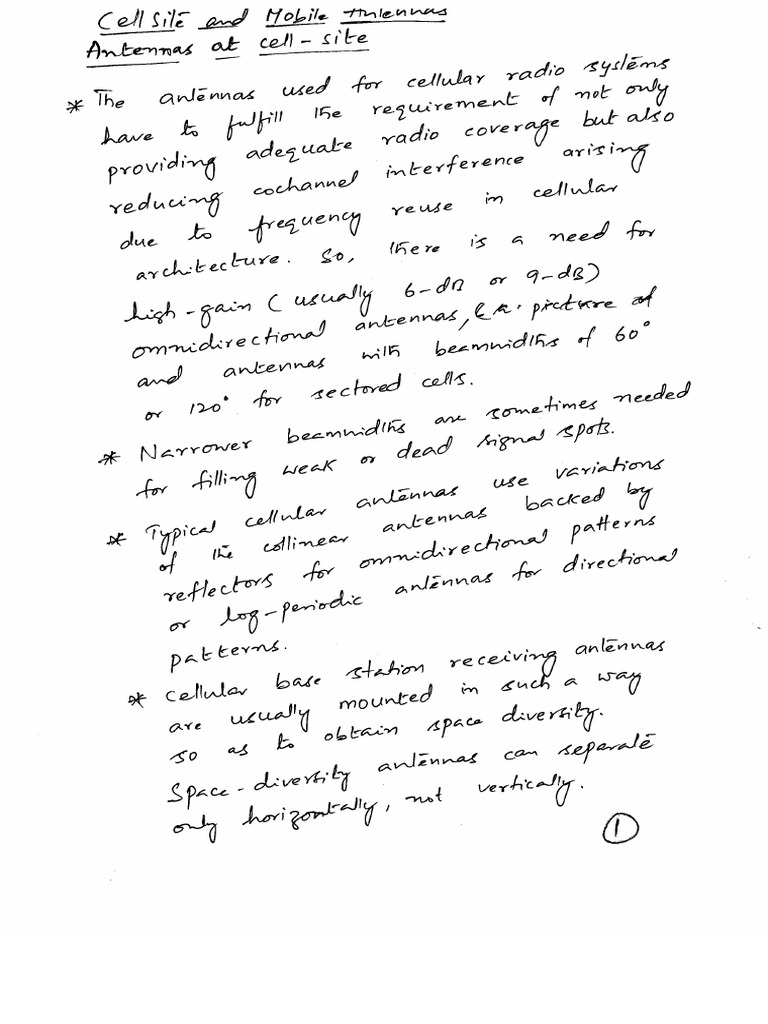 Cell Site and Mobile Antennas
Antennas at cell-site
* The antennas used for cellular radio systems
have to fulfill the requirement of not only
providing adequate radio coverage but also
reducing cochannel interference arising
due to frequency reuse in cellular
architecture. So, there is a need for
high-gain (usually 6-dB or 9-dB)
omnidirectional antennas,
and antennas with beamwidths of 60°
or 120° for sectored cells.
* Narrower beamwidths are sometimes needed
for filling weak or dead signal spots.
* Typical cellular antennas use variations
of the collinear antennas backed by
reflectors for omnidirectional patterns
or log-periodic antennas for directional
patterns.
* Cellular base station receiving antennas
are usually mounted in such a way
so as to obtain space diversity.
Space-diversity antennas can separate
only horizontally, not vertically.
1